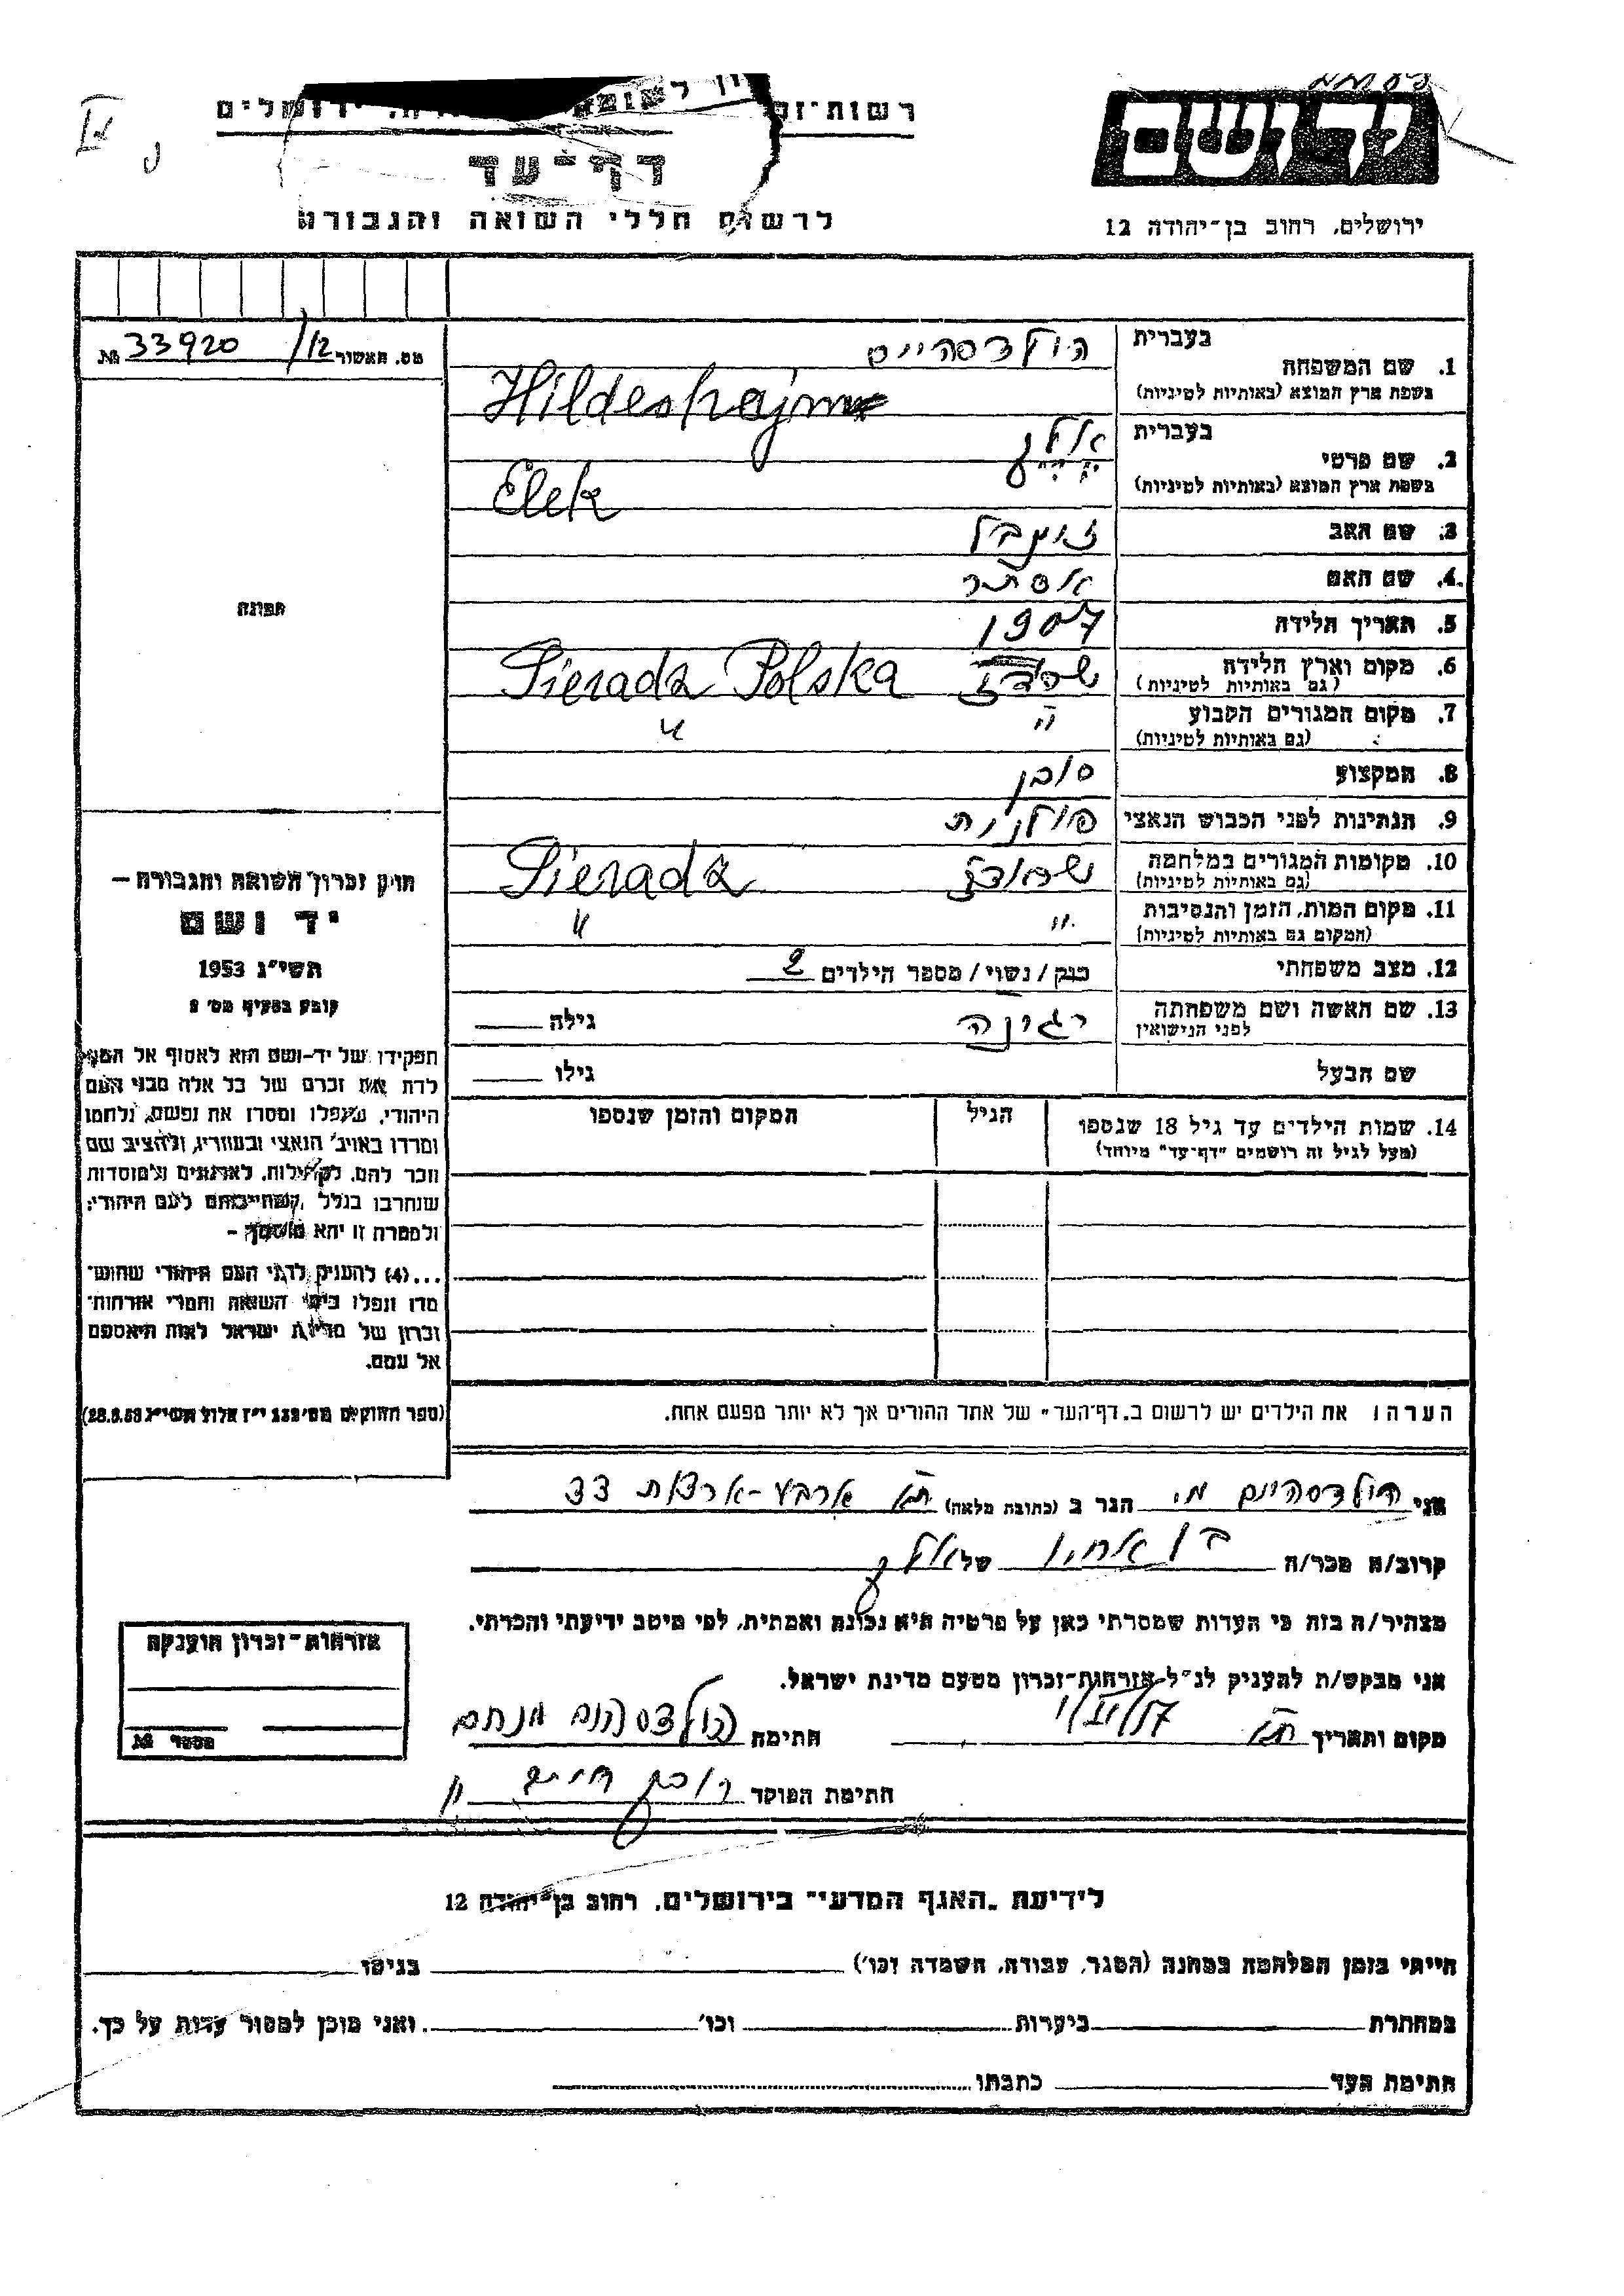 רשות־ ירושלים
דף־עד
לרשום חללי השואה והגבורה
יד ושם
ירושלים, רחוב בן־יהודה 12
מס. האשור 33920/12 №
בעברית
1. שם המשפחה הילדסהיים
בשפת ארץ המוצא (באותיות לטיניות) Hildeshajm
בעברית
2. שם פרטי אלק
בשפת ארץ המוצא (באותיות לטיניות) Elek
3. שם האב
4. שם האם אסתר
5. תאריך הלידה 1907
6. מקום וארץ הלידה Sieradz Polska
(גם באותיות לטיניות)
7. מקום המגורים הקבוע " "
(גם באותיות לטיניות)
8. המקצוע סוכן
9. הנתינות לפני הכבוש הנאצי פולנית
10. מקומות המגורים במלחמה Sieradz
(גם באותיות לטיניות)
11. מקום המות, הזמן והנסיבות " "
(המקום גם באותיות לטיניות)
12. מצב משפחתי רווק / נשוי / מספר הילדים 2
13. שם האשה ושם משפחתה רגינה גילה
לפני הנישואין
שם הבעל גילו
14. שמות הילדים עד גיל 18 שנספו הגיל המקום והזמן שנספו
(מעל לגיל זה רושמים "דף־עד" מיוחד)
הערה: את הילדים יש לרשום ב„דף־העד" של אחד ההורים אך לא יותר מפעם אחת.
תמונה
חוק זכרון השואה והגבורה —
יד ושם
תשי"ג 1953
קובע בסעיף מס' 2
תפקידו של יד־ושם הוא לאסוף אל המו־
לדת את זכרם של כל אלה מבני העם
היהודי, שנפלו ומסרו את נפשם, נלחמו
ומרדו באויב הנאצי ובעוזריו, ולהציב שם
וזכר להם, לקהילות, לארגונים ולמוסדות
שנחרבו בגלל השתייכותם לעם היהודי;
ולמטרה זו יהא מוסמך —
...(4) להעניק לבני העם היהודי שהוש־
מדו ונפלו בימי השואה והמרי אזרחות־
זכרון של מדינת ישראל לאות היאספם
אל עמם.
(ספר החוקים מס' 132 י"ז אלול תשי"ג 28.8.53)
אני הילדסהיים מ. הגר ב (כתובת מלאה) ת"א ארבע-ארצות 33
קרוב/ה מכר/ה בן אחיו של אלק
מצהיר/ה בזה כי העדות שמסרתי כאן על פרטיה היא נכונה ואמתית, לפי מיטב ידיעתי והכרתי.
אני מבקש/ת להעניק לנ"ל אזרחות־זכרון מטעם מדינת ישראל.
מקום ותאריך ת"א חתימה הילדסהים מנחם
חתימת הפוקד
אזרחות־זכרון הוענקה
מספר №
לידיעת „האגף המדעי" בירושלים, רחוב בן־יהודה 12
הייתי בזמן המלחמה במחנה (הסגר, עבודה, השמדה וכו') בגיטו
במחתרת ביערות וכו' ואני מוכן למסור עדות על כך.
חתימת העד כתבתו